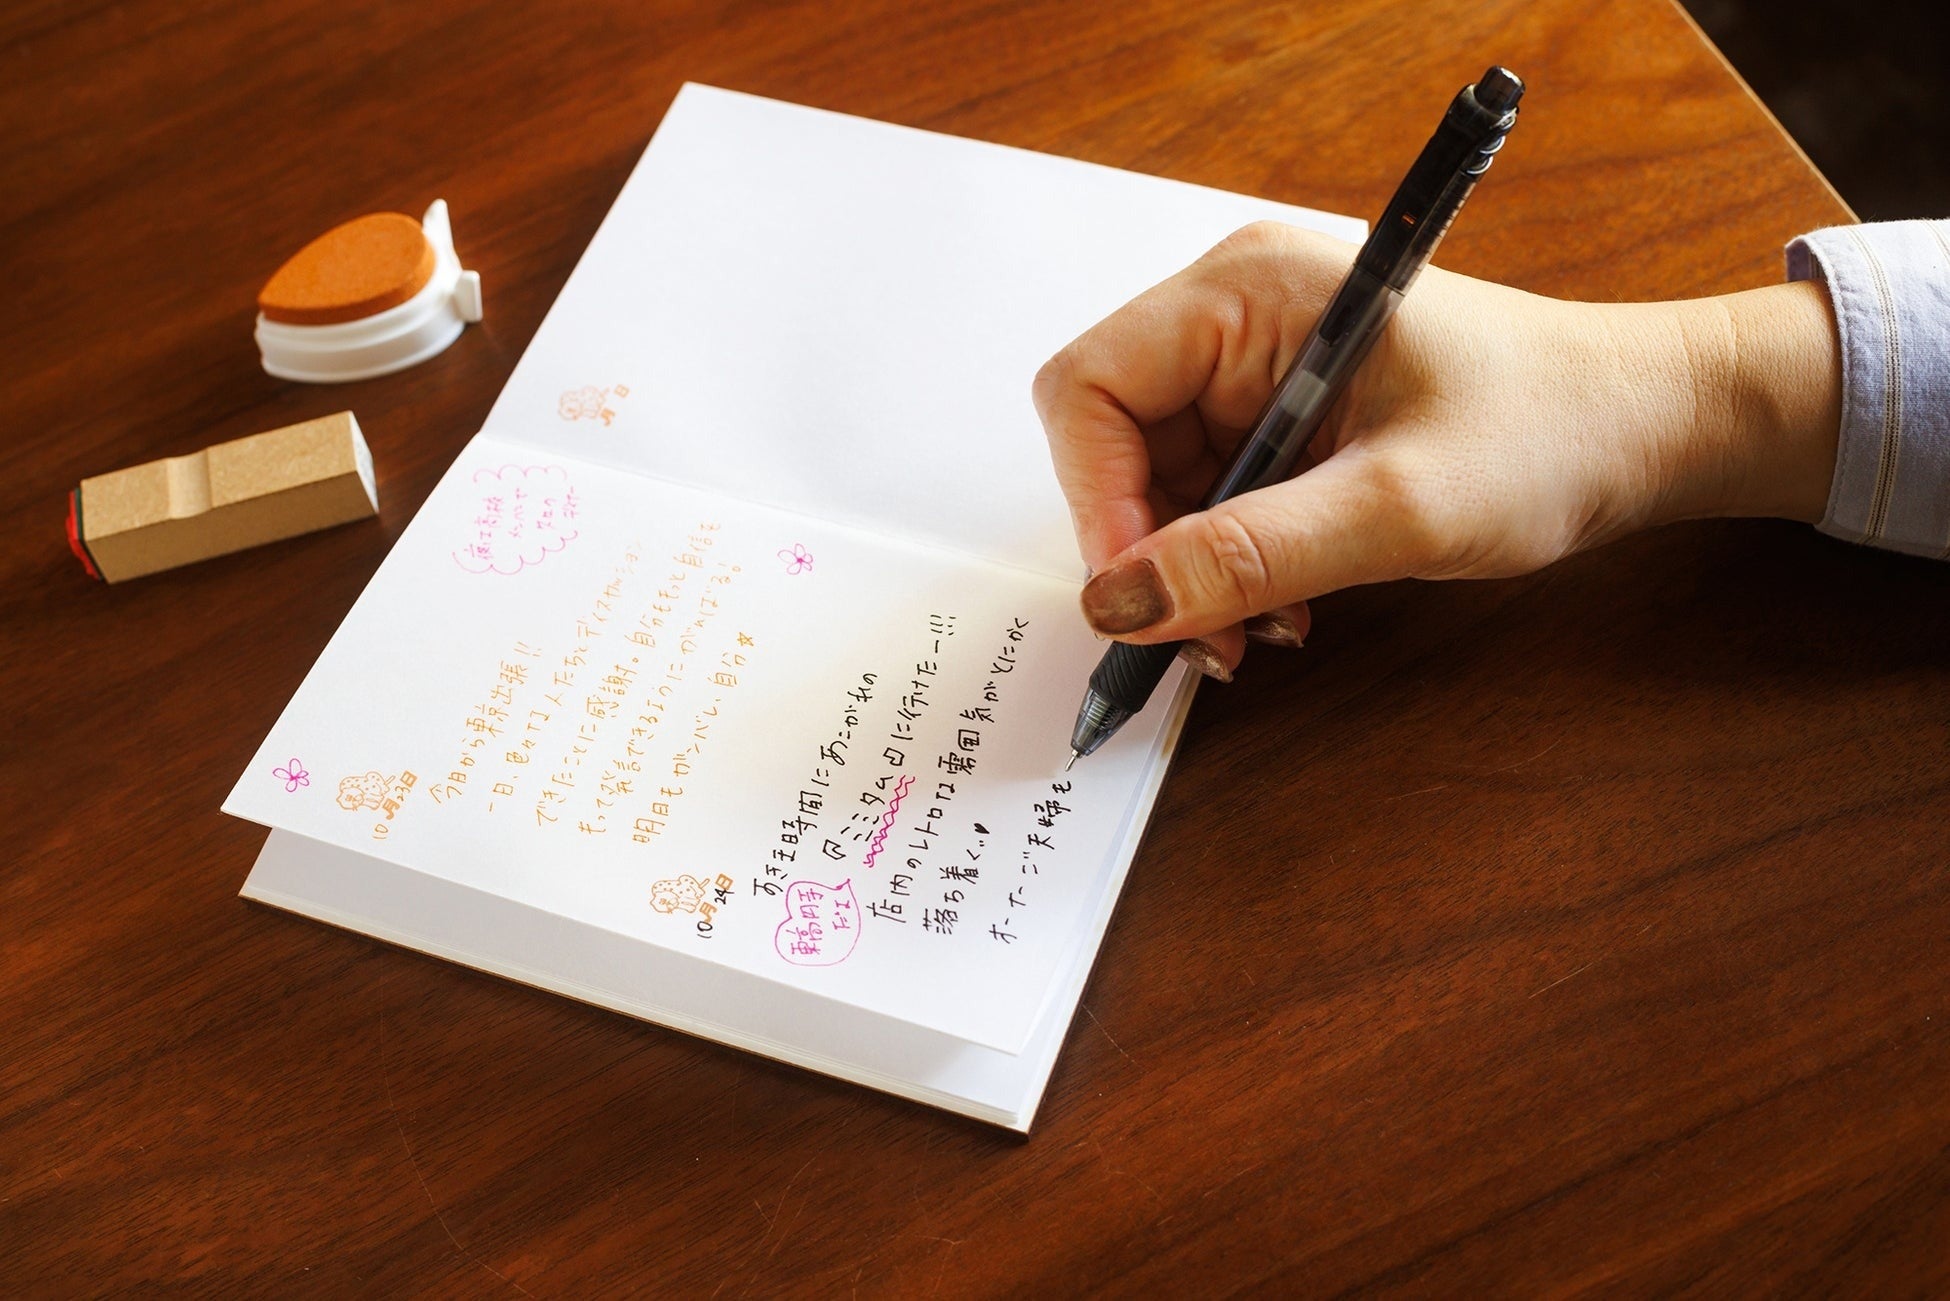 月 日
10月23日
今日から東京出張!!
一日、色々な人たちとディスカッション
できたことに感謝す。自分ももっと自信を
もって発言できるようにがんばる!
明日もガンバレ、自分☆
夜は高校
メンバーで
10月24日
すき間時間にあこがれの
「ミミタム」に行けたー!!!
東高円寺
だよ
店内のレトロな雰囲気がとにかく
落ち着く…♥
オーナーご夫婦も